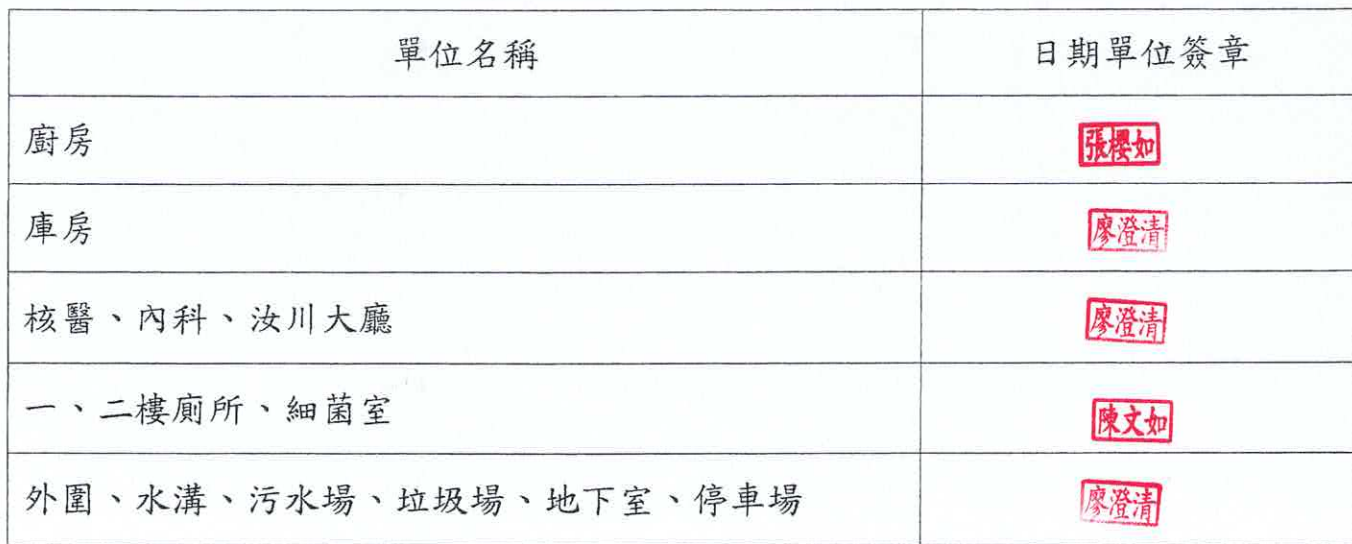 單位名稱
日期單位簽章
廚房
張櫻如
庫房
廖澄清
核醫、內科、汝川大廳
廖澄清
一、二樓廁所、細菌室
陳文如
外圍、水溝、污水場、垃圾場、地下室、停車場
廖澄清